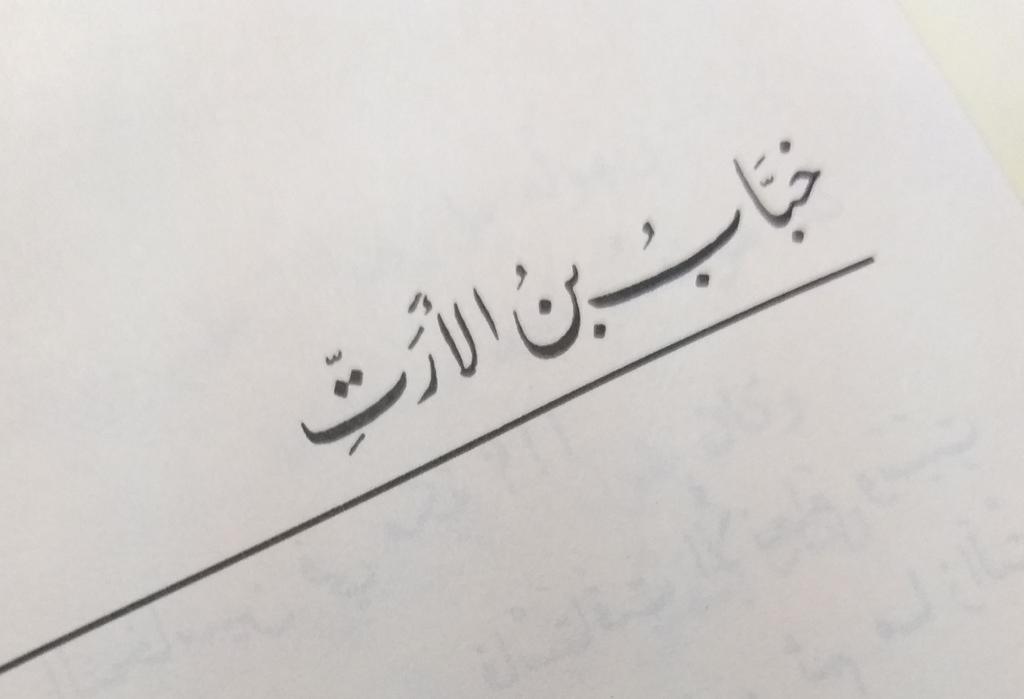 خبَّابُ بنُ الأرَتِّ